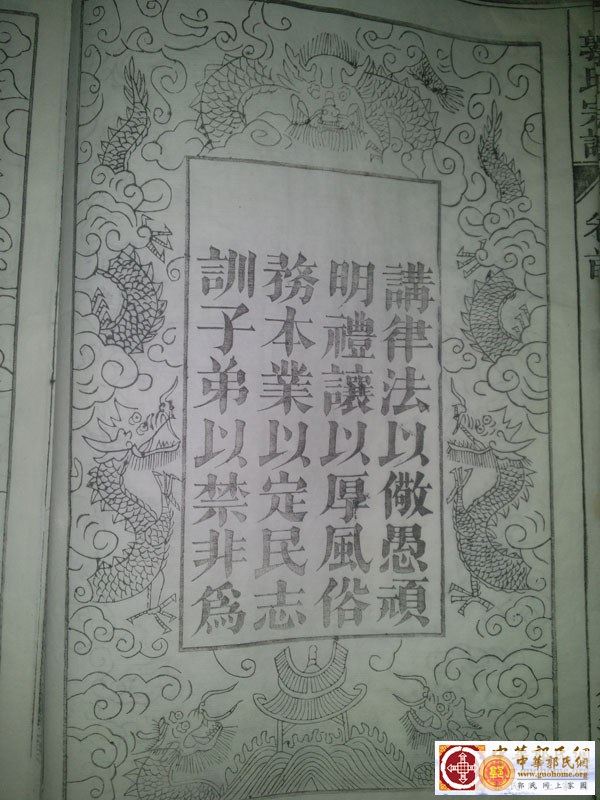 郭氏宗譜
卷首
講律法以儆愚頑
明禮讓以厚風俗
務本業以定民志
訓子弟以禁非爲
中華郭氏網
www.guohome.org
郭氏网上家园